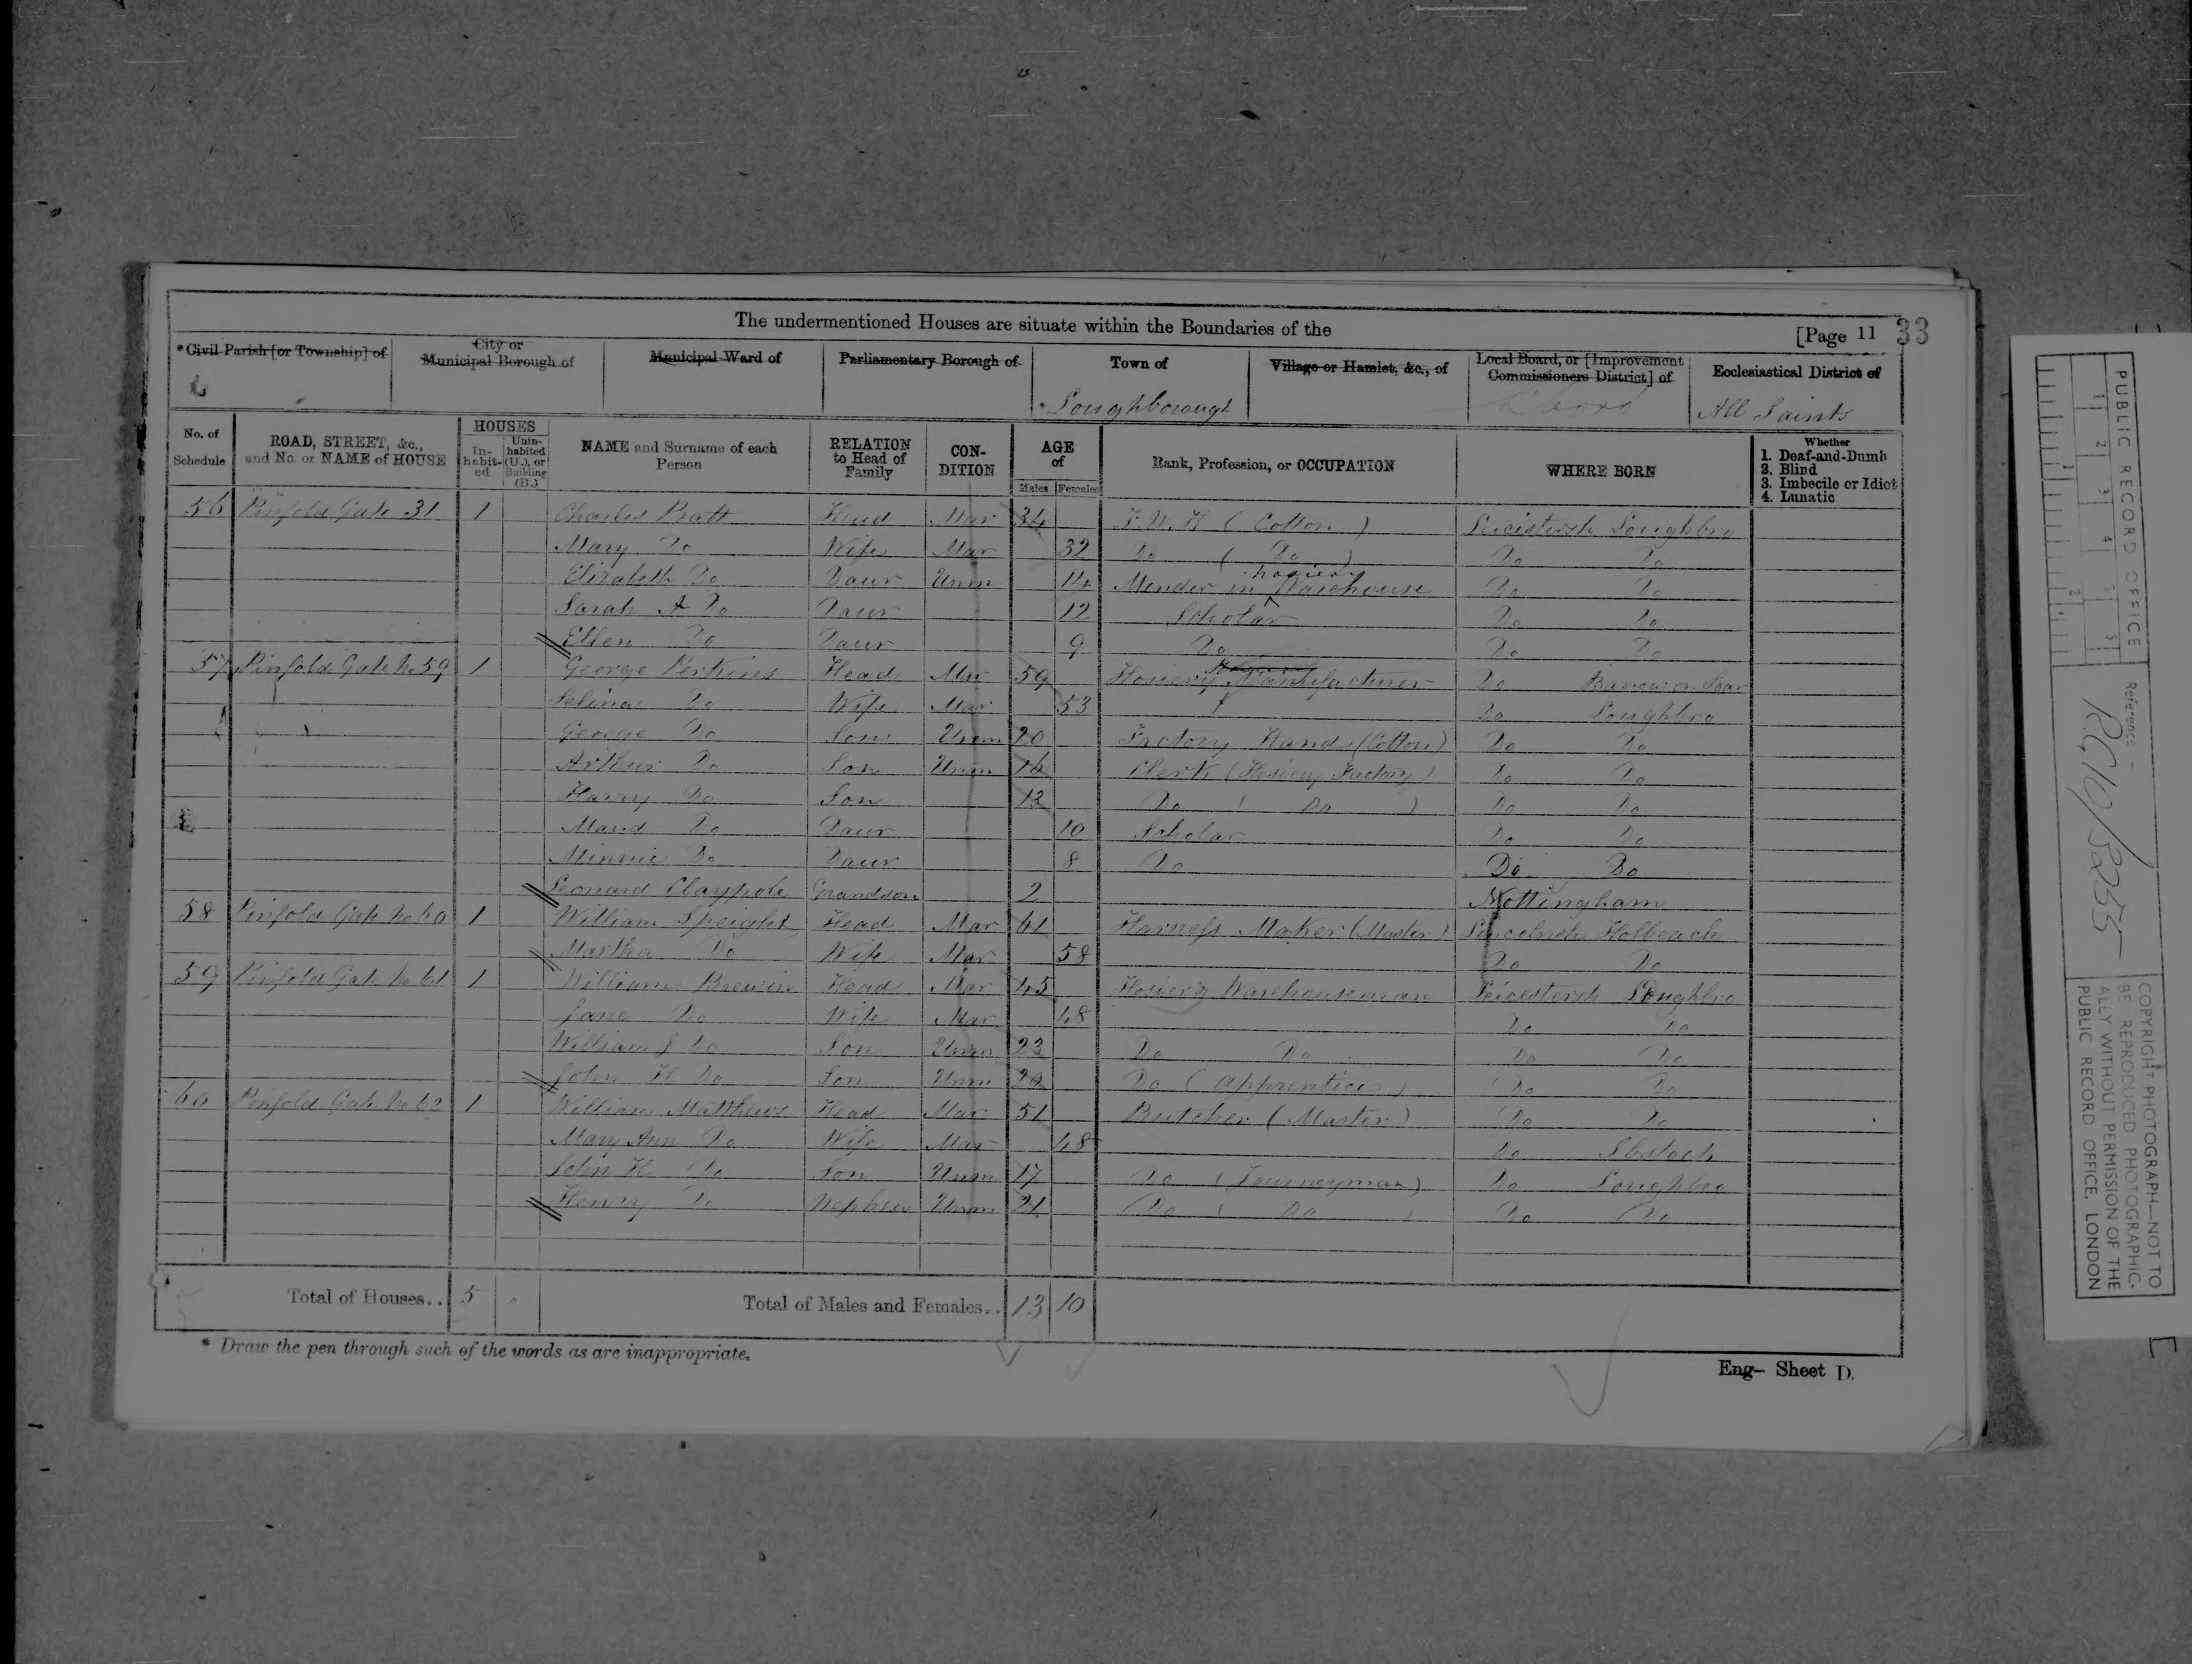 The undermentioned Houses are situate within the Boundaries of the
[Page 11 33
*Civil Parish [or Township] of
City or Municipal Borough of
Municipal Ward of
Parliamentary Borough of
Town of
Loughborough
Village or Hamlet, &c., of
Local Board, or [Improvement Commissioners District] of
Ecclesiastical District of
All Saints
No. of Schedule
ROAD, STREET, &c., and No. or NAME of HOUSE
HOUSES
In-habit-ed
Unin-habited (U.), or Building (B.)
NAME and Surname of each Person
RELATION to Head of Family
CON-DITION
AGE of
Males Females
Rank, Profession, or OCCUPATION
WHERE BORN
Whether
1. Deaf-and-Dumb
2. Blind
3. Imbecile or Idiot
4. Lunatic
56 Pinfold Gate 31 1 Charles Pratt Head Mar 34 F.W.K (Cotton) Leicestersh Loughbro
Mary Do Wife Mar 32 Do (Do) Do Do
Elizabeth Do Daur Unm 14 Mender in hosiery Warehouse Do Do
Sarah A Do Daur 12 Scholar Do Do
Ellen Do Daur 9 Do Do Do
57 Pinfold Gate No 59 1 George Perkins Head Mar 59 Hosiery Manufacturer Do Barrow on Soar
Selina Do Wife Mar 53 Do Loughbro
George Do Son Unm 20 Factory Hand (Cotton) Do Do
Arthur Do Son Unm 16 Clerk (Hosiery Factory) Do Do
Harry Do Son 13 Do (Do) Do Do
Maud Do Daur 10 Scholar Do Do
Minnie Do Daur 8 Do Do Do
Leonard Claypole Grandson 2 Nottingham
58 Pinfold Gate No 60 1 William Speight Head Mar 61 Harness Maker (Master) Lincolnsh Holbeach
Martha Do Wife Mar 58 Do Do
59 Pinfold Gate No 61 1 William Brewin Head Mar 45 Hosiery Warehouseman Leicestersh Loughbro
Jane Do Wife Mar 48 Do Do
William J Do Son Unm 23 Do Do Do Do
John H Do Son Unm 20 Do (Apprentice) Do Do
60 Pinfold Gate No 62 1 William Matthews Head Mar 51 Butcher (Master) Do Do
Mary Ann Do Wife Mar 48 Do Ibstock
John H Do Son Unm 17 Do (Journeyman) Do Loughbro
Henry Do Nephew Unm 21 Do (Do) Do Do
Total of Houses.. 5
Total of Males and Females.. 13 10
* Draw the pen through such of the words as are inappropriate.
Eng- Sheet D.
PUBLIC RECORD OFFICE
Reference:-
RG 10/3255
COPYRIGHT PHOTOGRAPH—NOT TO
BE REPRODUCED PHOTOGRAPHIC-
ALLY WITHOUT PERMISSION OF THE
PUBLIC RECORD OFFICE, LONDON